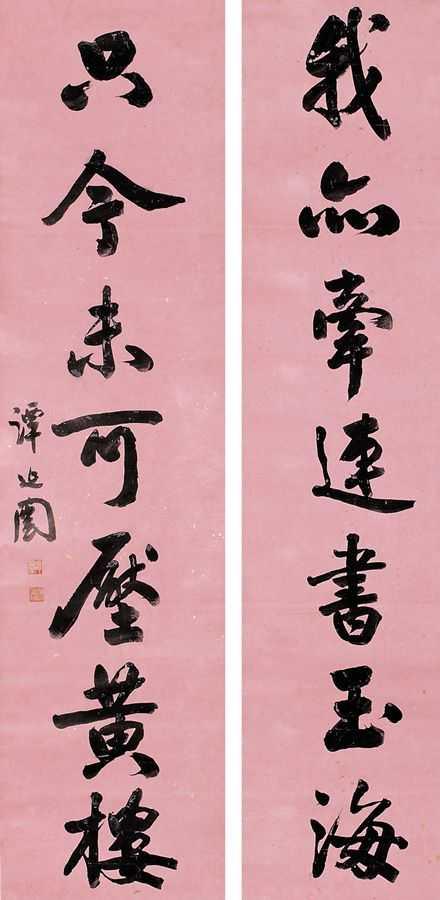 我亦牽連書玉海
只今未可壓黃樓
譚延闓